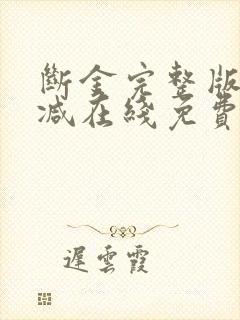 斷金完整版
減在綫免費
遲雲霞